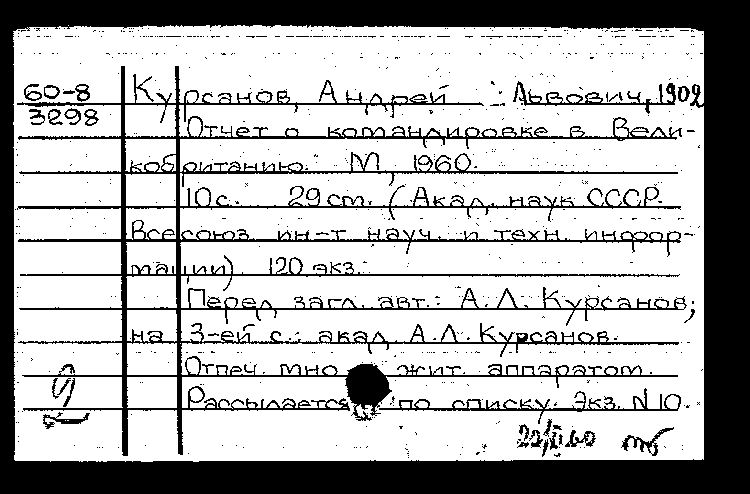 60-8
3298
Курсанов, Андрей Львович, 1902
Отчет о командировке в Вели-
кобританию. М., 1960.
10 с. 29 ст. (Акад. наук СССР.
Всесоюз. ин-т науч. и техн. инфор-
мации). 120 экз.
Перед загл. авт.: А. Л. Курсанов;
на 3-ей с.: акад. А. Л. Курсанов.
Отпеч. множит. аппаратом.
Рассылается по списку. Экз. N 10.
2